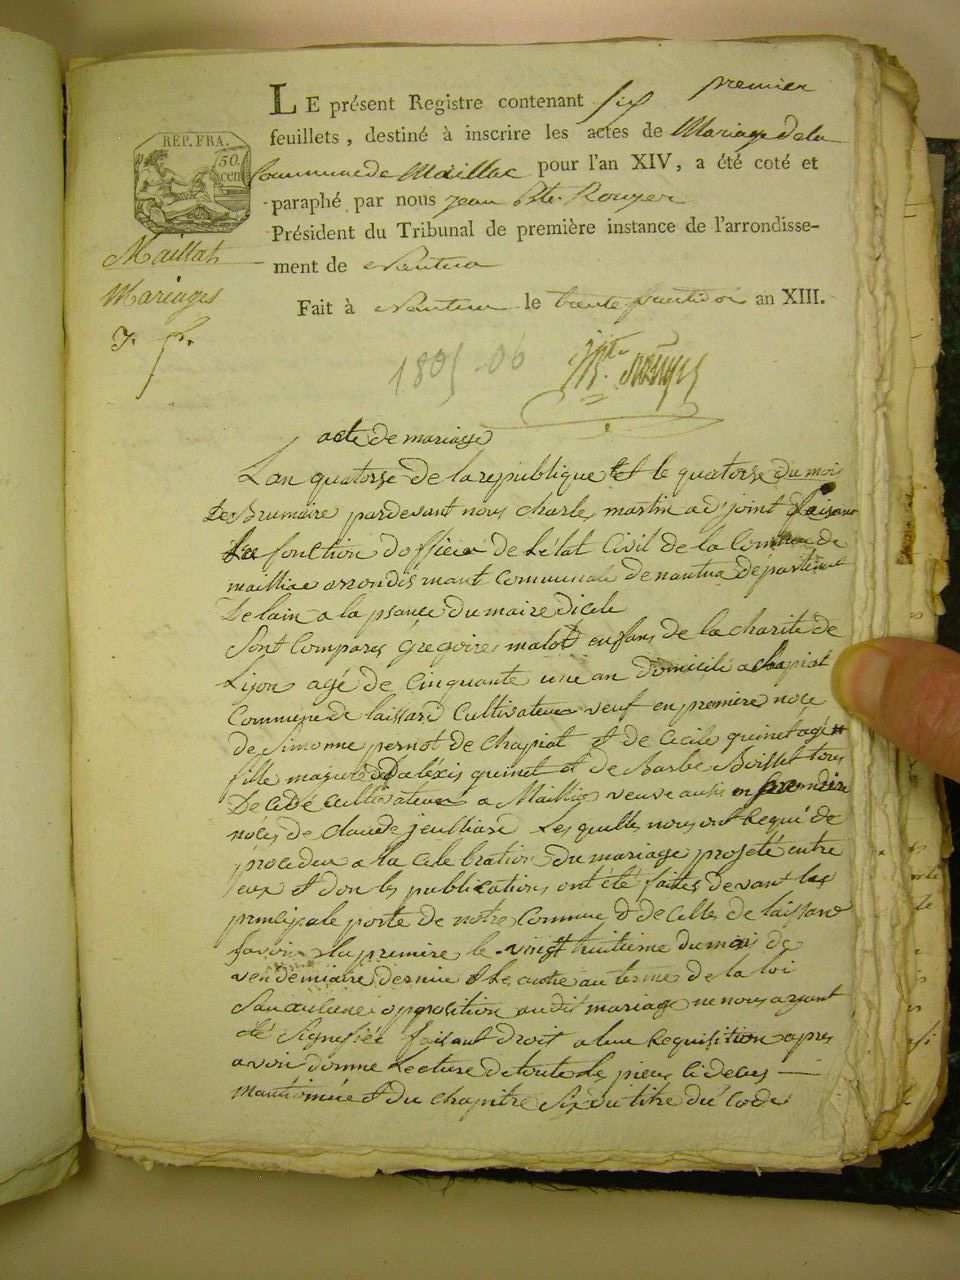 premier
LE présent Registre contenant six
feuillets, destiné à inscrire les actes de Mariage de la
Commune de Maillac pour l'an XIV, a été coté et
paraphé par nous jean Bte. Rouyer
Président du Tribunal de première instance de l'arrondisse-
ment de Nantua
Fait à Nantua le trente fructidor an XIII.
REP. FRA.
50.
cen
Maillat
Mariages
1805-06
acte de mariage
Lan quatorse de la republique et le quatorse du mois
De Brumaire pardevant nous charle martin adjoint faisant
fonction dofficier de Létat Civil de la Commune de
mailliac arrondismant Communale de nantua departement
De lain a la psance du maire dicele
Sont Compares gregoire matot enfans de la charite de
Lion agé de Cinquante une an domicilié a chapiat
Commune de laissard Cultivateur veuf en premiere noce
de Simonne pernot de chapiat et de Cecile quinet agé
fille majure D aléxis quinet et de Barbe Boisset tous
De cedé cultivateur a Maillia veuve ausi en premiere
noces de claude jeulliard Lesquelles nous ont Requi de
proceder a la celebration du mariage projeté entre
eux et don les publications ont été faites devant la
principale porte de notre Commune et de Celles de laissard
savoir la premiere le vingt huitieme du mois de
vendemiaire dernier et le autre au terme de la loi
San aucune opposition audit mariage ne nous ayant
été Signifiée faisant Droit a leur Requisition apres
avoir donne Lecture de toute le pieces Cidesus
mantionnée et du chapitre Six du titre du Code